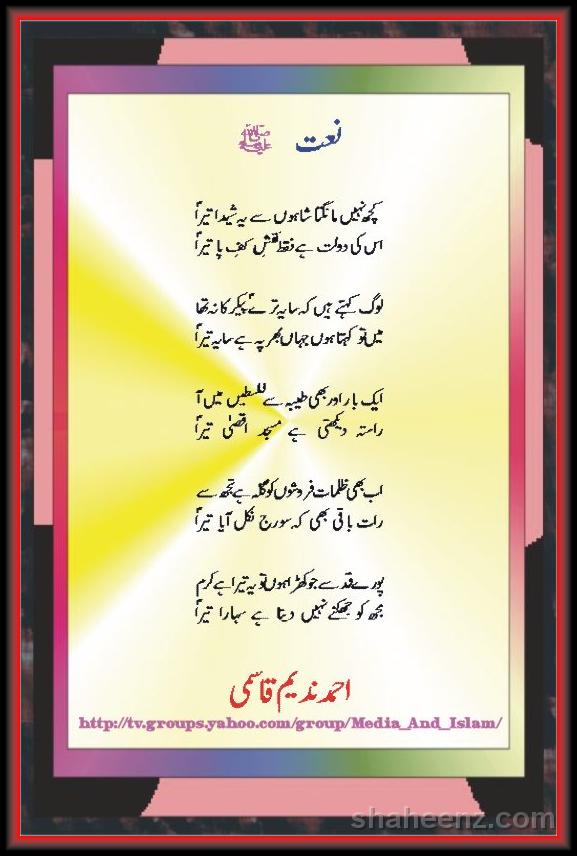 نعت ﷺ
کچھ نہیں مانگتا شاہوں سے یہ شیدا تیرا
اس کی دولت ہے فقط نقشِ کفِ پا تیرا
لوگ کہتے ہیں کہ سایہ ترے پیکر کا نہ تھا
میں تو کہتا ہوں جہاں بھر پہ ہے سایہ تیرا
ایک بار اور بھی طیبہ سے فلسطیں میں آ
راستہ دیکھتی ہے مسجد اقصیٰ تیرا
اب بھی ظلمات فروشوں کو گلہ ہے تجھ سے
رات باقی تھی کہ سورج نکل آیا تیرا
پورے قد سے جو کھڑا ہوں تو یہ تیرا ہے کرم
مجھ کو جھکنے نہیں دیتا ہے سہارا تیرا
احمد ندیم قاسمی
http://tv.groups.yahoo.com/group/Media_And_Islam/
shaheenz.com